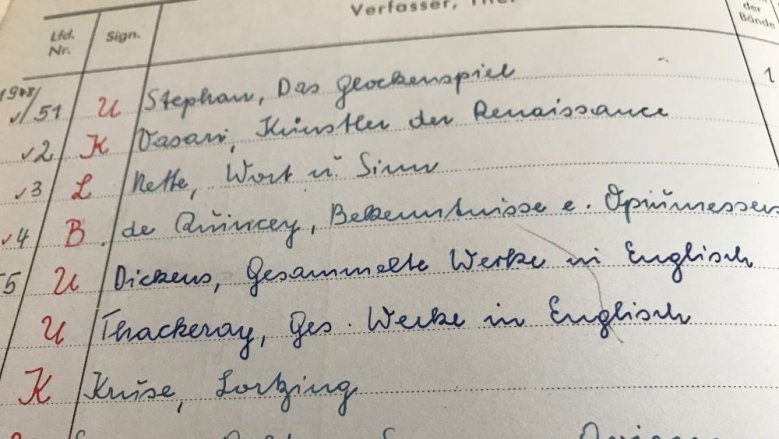 Lfd. Nr. Sign. Verfasser, der Bände
51 U Stephan, Das Glockenspiel 1
2 K Vasari, Künstler der Renaissance
3 L Nette, Wort u. Sinn
4 B de Quincey, Bekenntnisse e. Opiumessers
5 U Dickens, Gesammelte Werke in Englisch
U Thackeray, Ges. Werke in Englisch
K Kruse, Lortzing